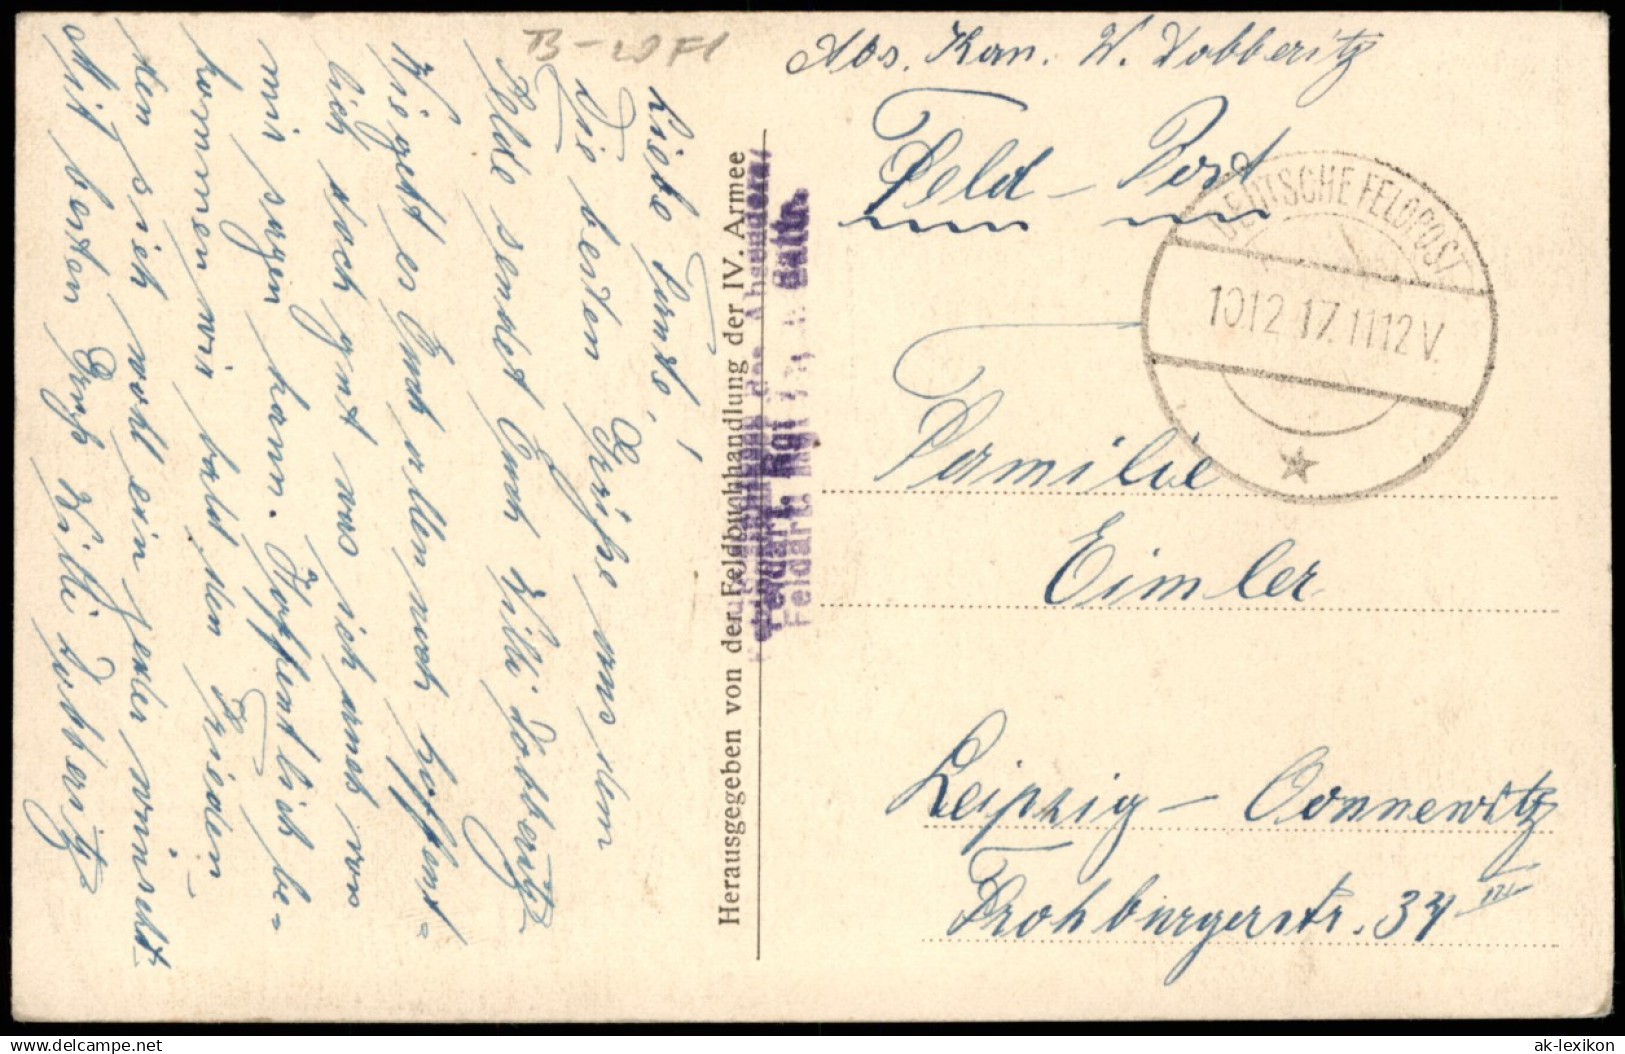 B-20 Fl
Abs. Kan. W. Dobberitz
Feld-Post
DEUTSCHE FELDPOST
10.12.17. 11-12 V.
Familie
Eimler
Leipzig - Connewitz
Frohburgerstr. 34 III
Herausgegeben von der Feldbuchhandlung der IV. Armee
Feldart. Rgt
Feldart.
Liebe Tante!
Die besten Grüße aus dem
Felde sendet Euch Willi Dobberitz
Wie geht es Euch allen noch hoffent=
lich noch gut was ich auch von
mir sagen kann. Hoffentlich be=
kommen wir bald den Frieden
den sich wohl ein jeder wünscht
Mit besten Gruß Willi Dobberitz
ak-lexikon
www.delcampe.net